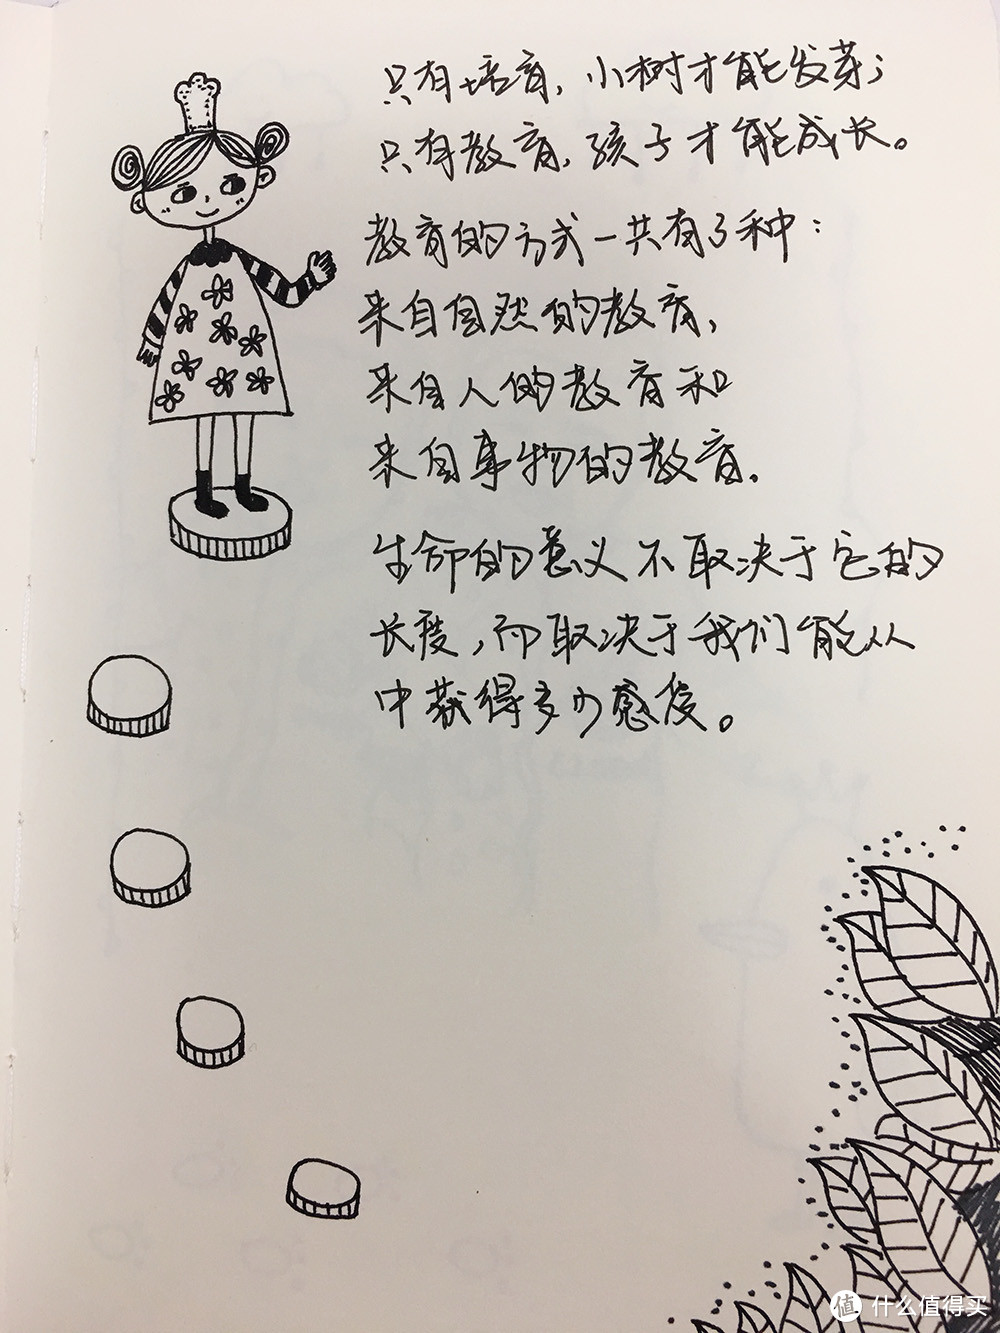 只有培育，小树才能发芽；
只有教育，孩子才能成长。
教育的方式一共有3种：
来自自然的教育，
来自人的教育和
来自事物的教育。
生命的意义不取决于它的
长度，而取决于我们能从
中获得多少感受。
值 什么值得买